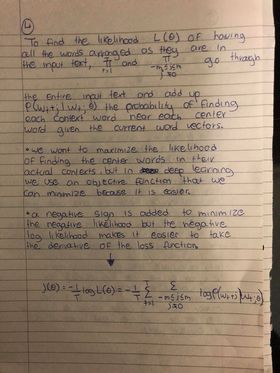 4
- To find the likelihood L(θ) of having
all the words arranged as they are in
the input text, T∏t=1 and ∏-m≤j≤m j≠0 go through
the entire input text and add up
P(wt+j | wt; θ) the probability of finding
each context word near each center
word given the current word vectors.
• we want to maximize the likelihood
of finding the center words in their
actual contexts but in deep learning
we use an objective function that we
can minimize because it is easier.
• a negative sign is added to minimize
the negative likelihood but the negative
log likelihood makes it easier to take
the derivative of the loss function.
↓
J(θ) = -1/T log L(θ) = -1/T T∑t=1 ∑-m≤j≤m j≠0 log P(wt+j | wt; θ)